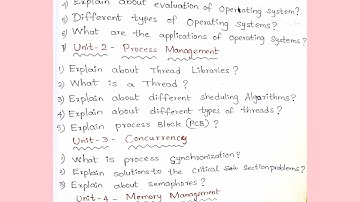 4) Explain about evaluation of Operating System?
5) Different types of Operating Systems?
6) What are the applications of Operating Systems?
Unit-2- Process Management
1) Explain about Thread Libraries?
2) What is a Thread?
3) Explain about different sheduling Algorithms?
4) Explain about different types of threads?
5) Explain process Block (PCB)?
Unit-3- Concurrency
1) What is process Synchronization?
2) Explain solutions to the critical section problems?
3) Explain about semaphores?
Unit-4- Memory Management